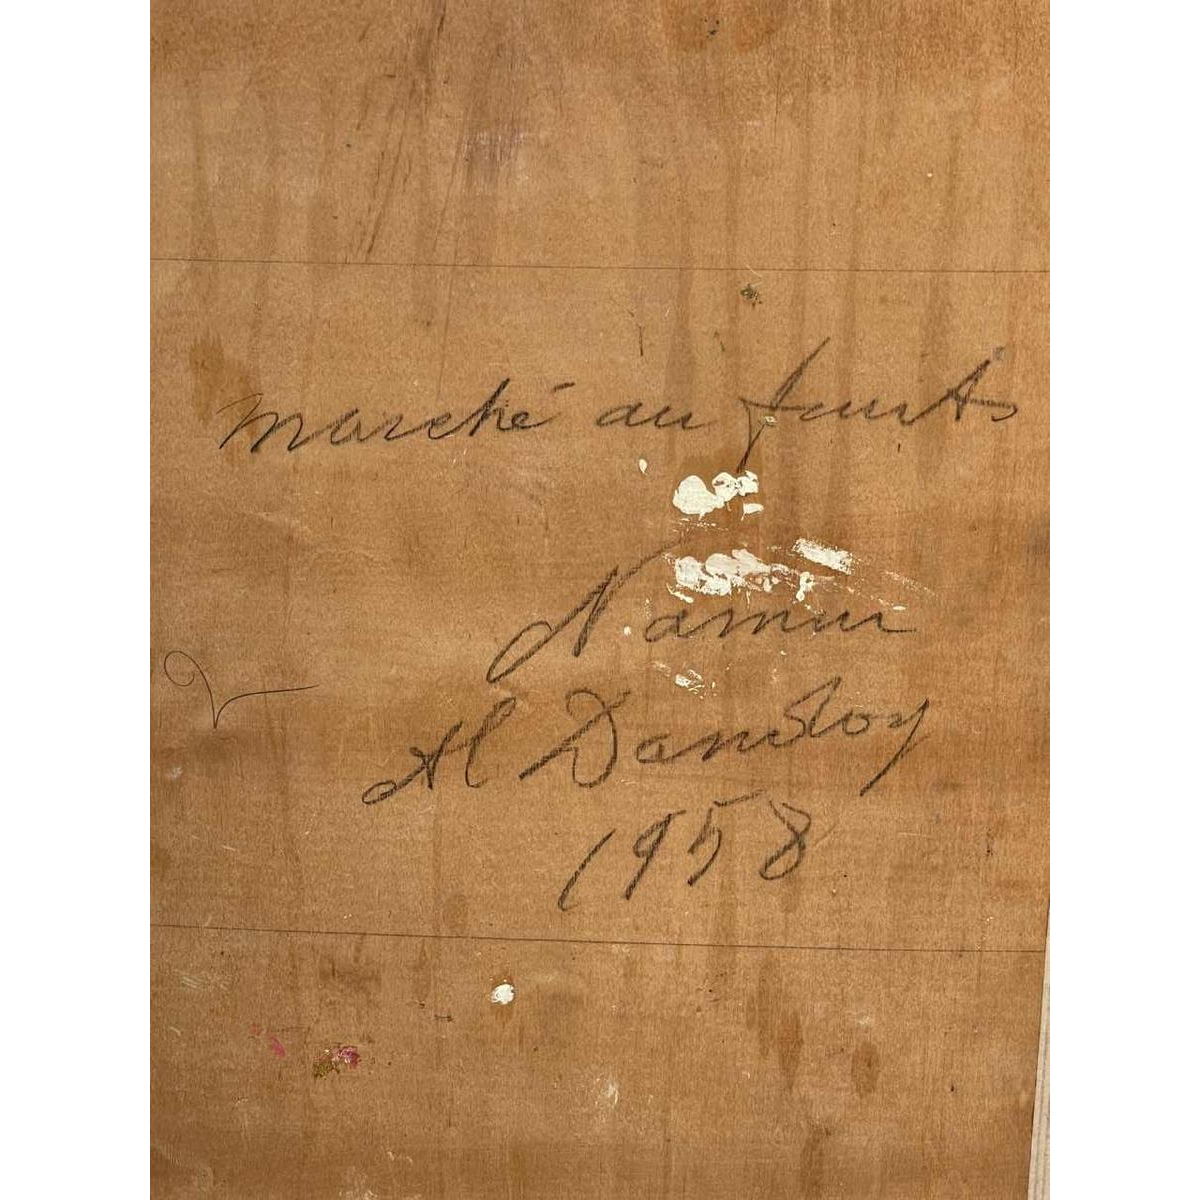 marché au fruits
Namur
Al Dandoy
1958